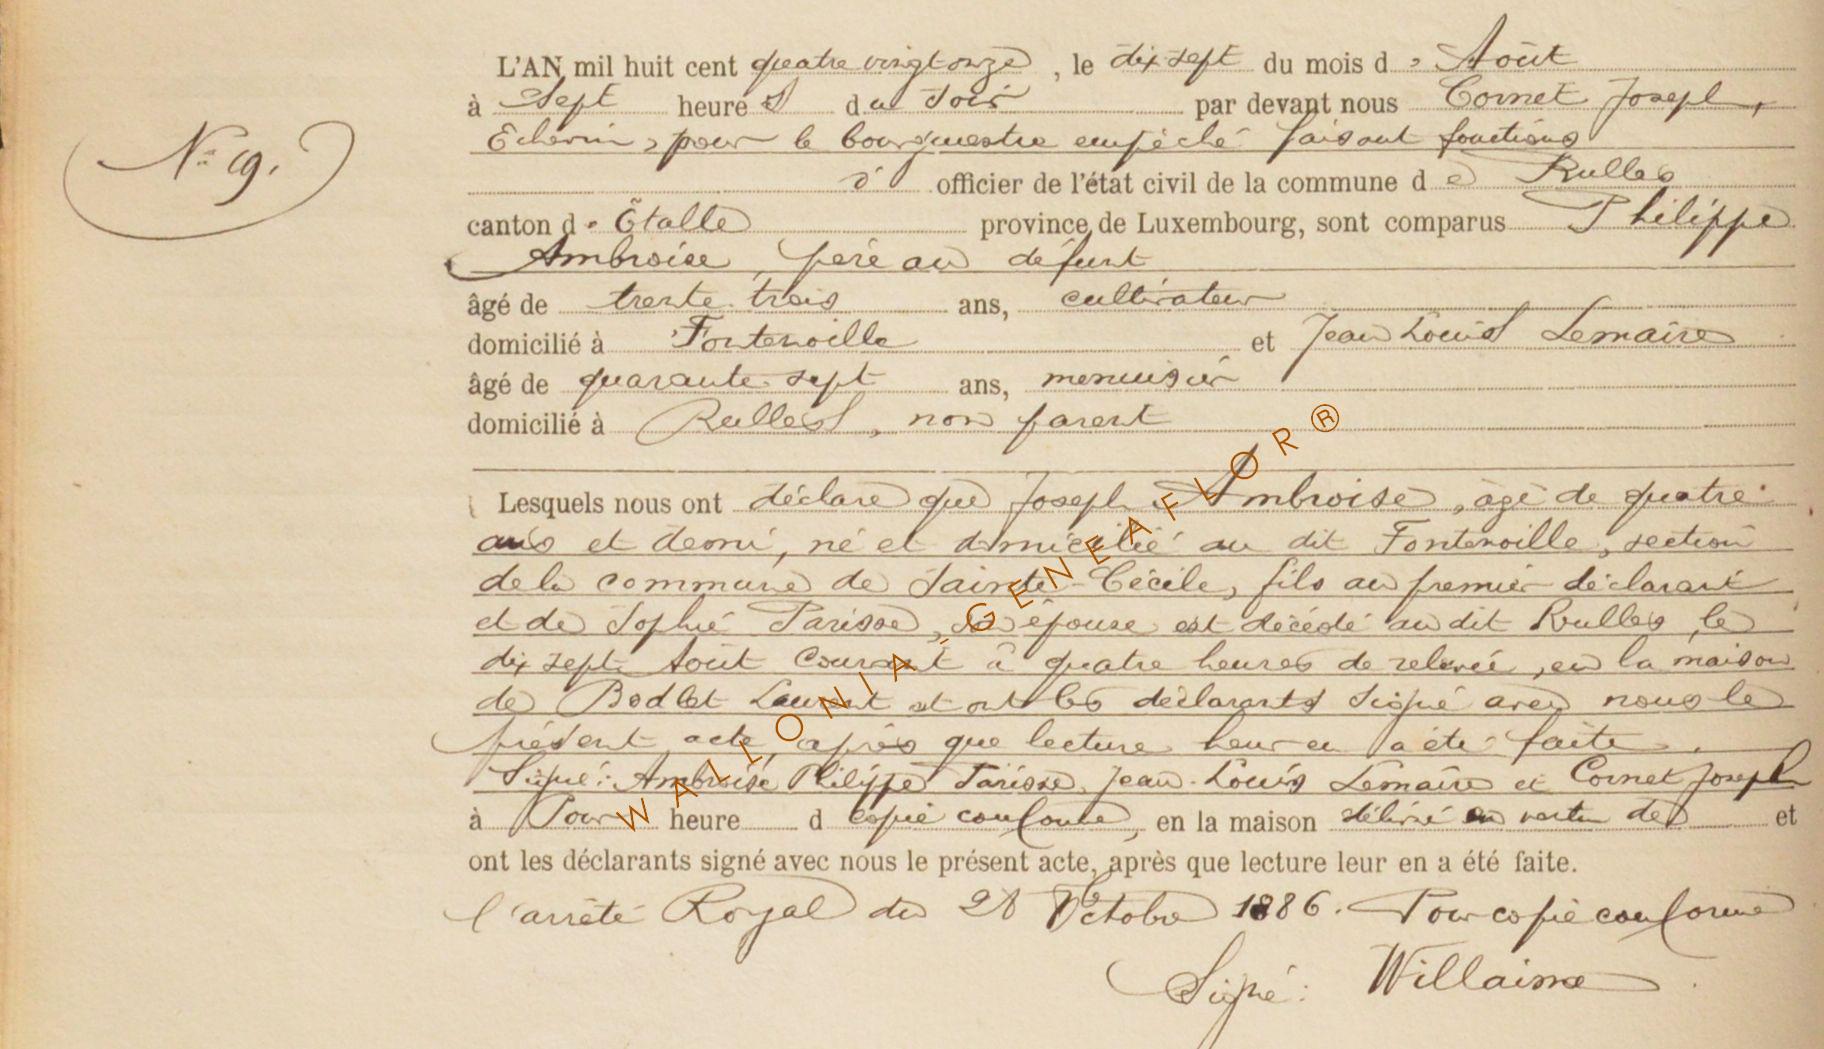 L'AN mil huit cent quatre vingt onze, le dix sept du mois d'Août
à Sept heures du Soir par devant nous Cornet Joseph,
Echevin, pour le bourgmestre empêché faisant fonctions
N° 19.
d' officier de l'état civil de la commune de Rulles
canton d'Étalle province de Luxembourg, sont comparus Philippe
Ambroise, père au défunt
âgé de trente trois ans, cultivateur
domicilié à Fontenoille et Jean Louis Lemaire
âgé de quarante sept ans, menuisier
domicilié à Rulles, non parent
Lesquels nous ont déclaré que Joseph Ambroise, âgé de quatre
ans et demi, né et domicilié au dit Fontenoille, section
de la commune de Sainte-Cécile, fils au premier déclarant
et de Sophie Parisse, son épouse est décédé au dit Rulles, le
dix sept Août courant à quatre heures de relevée, en la maison
de Bodlet Laurent et ont les déclarants signé avec nous le
présent acte, après que lecture leur en a été faite.
Signé: Ambroise Philippe Parisse, Jean-Louis Lemaire et Cornet Joseph
à Pour heure d copie conforme, en la maison délivré en vertu de et
ont les déclarants signé avec nous le présent acte, après que lecture leur en a été faite.
l'arrêté Royal du 28 Octobre 1886. Pour copie conforme
Signé: Willaime
WALLONIA-GENEAFLOR®